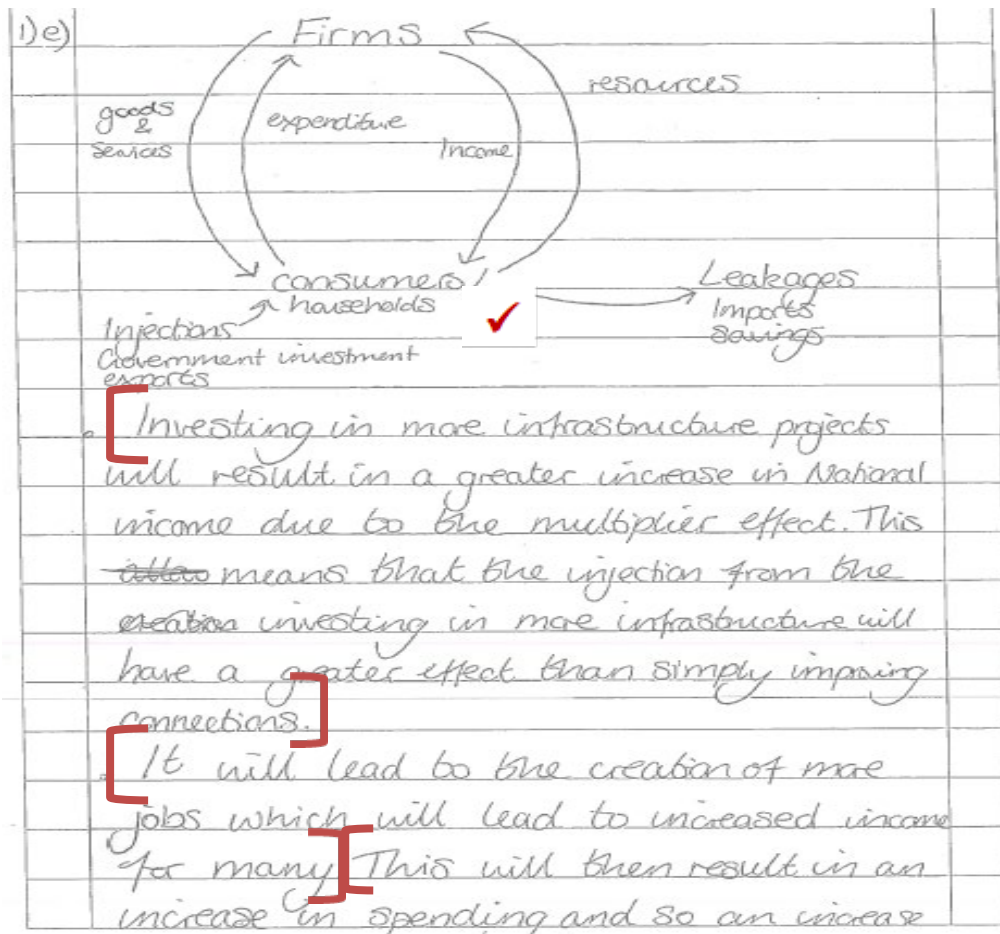 1)e)
Firms
resources
goods
&
services
expenditure
Income
consumers /
households
Leakages
Imports
savings
Injections
Government investment
exports
Investing in more infrastructure projects
will result in a greater increase in National
income due to the multiplier effect. This
means that the injection from the
creation investing in more infrastructure will
have a greater effect than simply improving
connections.
It will lead to the creation of more
jobs which will lead to increased income
for many This will then result in an
increase in spending and so an increase